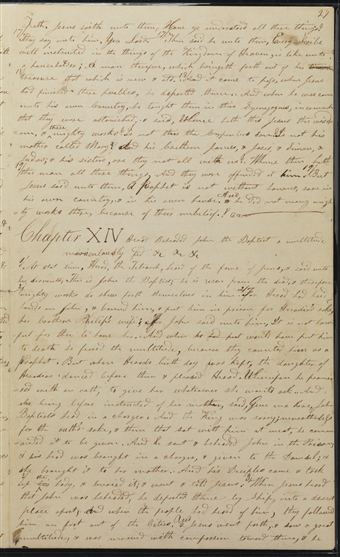 37
truth, Jesus saith unto them, Have ye understood all these things?
they say unto him, Yea Lord. Then said he unto them, Every scribe
well instructed in the things of the Kingdom of Heaven, is like unto
a householder; A man therefore, which bringeth forth out of his
treasure that which is new & old. And it came to pass, when Jesus
had finished these parables, he departed thence. And when he was come
into his own Country, he taught them in their Synagogues, insomuch
that they were astonished, & said, Whence hath this Jesus this wisdom
& these mighty works? Is not this the Carpenters son? Is not his
mother called Mary? And his brethren James, & Joses, & Simon, &
Judas; & his sisters, are they not all with us? Whence then hath
this man all these things. And they were offended at him. But
Jesus said unto them, A Prophet is not without honour, save in
his own country, & in his own house, And he did not many might
ty works there, because of their unbelief.
Chapter XIV Herod beheaded John the Baptist a multitude
miraculously fed &c &c &c
At that time, Herod, the Tetrarch, heard of the fame of Jesus, & said unto
his servants, This is John the Baptist; he is risen from the dead, & therefore
mighty works do shew forth themselves in him. For Herod had laid
hold on John, & bound him, & put him in prison for Herodias' sake,
his brother Philip's wife, for John said unto him, It is not law-
ful for thee to have her. And when he would have put him
to death, he feared the multitude, because they counted him as a
prophet. But when Herods birth day was kept, the daughter of
Herodias danced before them & pleased Herod. Whereupon he promised
with an oath, to give her whatsoever she would ask. And
she being before instructed of her mother, said, Give me here, John
Baptists head in a charger. And the King was sorry; nevertheless
for the oath's sake, & them that sat with him at meat, he comm-
anded it to be given. And he sent & beheaded John in the Prison,
& his head was brought in a charger, & given to the Damsel; &
she brought it to her mother. And his Disciples came & took
up the body, & buried it; & went & told Jesus. When Jesus heard
that John was beheaded, he departed thence by ship, into a desert
place apart; and when the people had heard of him, they followed
him on foot out of the Cities. And Jesus went forth, & saw a great
multitude, & was moved with compassion toward them, & he